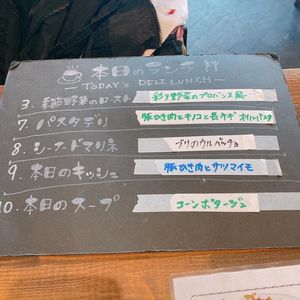 本日のランチ
TODAY'S DELI LUNCH
3. 季節野菜のロースト 彩り野菜のプロバンス風
7. パスタデリ 豚ひき肉とキノコと長ネギ オイルパスタ
8. シーフードマリネ ブリのカルパッチョ
9. 本日のキッシュ 豚ひき肉とサツマイモ
10. 本日のスープ コーンポタージュ